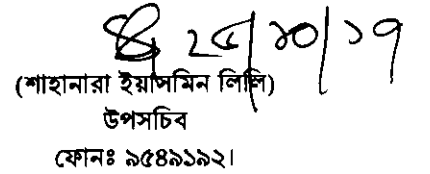 ২৫/১০/১৭
(শাহানারা ইয়াসমিন লিলি)
উপসচিব
ফোনঃ ৯৫৪৯১৯২।